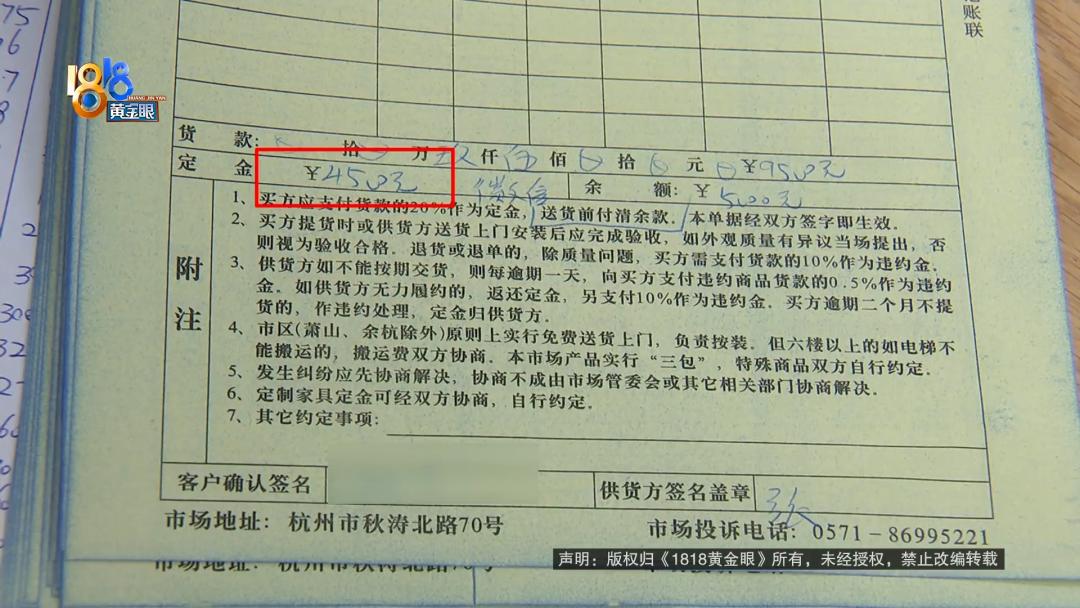 记账联
1818
HUANG JIN YAN
黄金眼
货 款: 拾 万 玖 仟 伍 佰 拾 元 ¥9500元
定 金 ¥4500元 微信 余 额: ¥ 5000元
附注
1、买方应支付货款的20%作为定金，送货前付清余款。本单据经双方签字即生效。
2、买方提货时或供货方送货上门安装后应完成验收，如外观质量有异议当场提出，否
则视为验收合格。退货或退单的，除质量问题，买方需支付货款的10%作为违约金。
3、供货方如不能按期交货，则每逾期一天，向买方支付违约商品货款的0.5%作为违约
金。如供货方无力履约的，返还定金，另支付10%作为违约金。买方逾期二个月不提
货的，作违约处理，定金归供货方。
4、市区(萧山、余杭除外)原则上实行免费送货上门，负责按装。但六楼以上的如电梯不
能搬运的，搬运费双方协商。本市场产品实行“三包”，特殊商品双方自行约定。
5、发生纠纷应先协商解决，协商不成由市场管委会或其它相关部门协商解决。
6、定制家具定金可经双方协商，自行约定。
7、其它约定事项:
客户确认签名 供货方签名盖章 张
市场地址: 杭州市秋涛北路70号 市场投诉电话: 0571-86995221
市场地址: 杭州市秋涛北路70号
声明：版权归《1818黄金眼》所有，未经授权，禁止改编转载